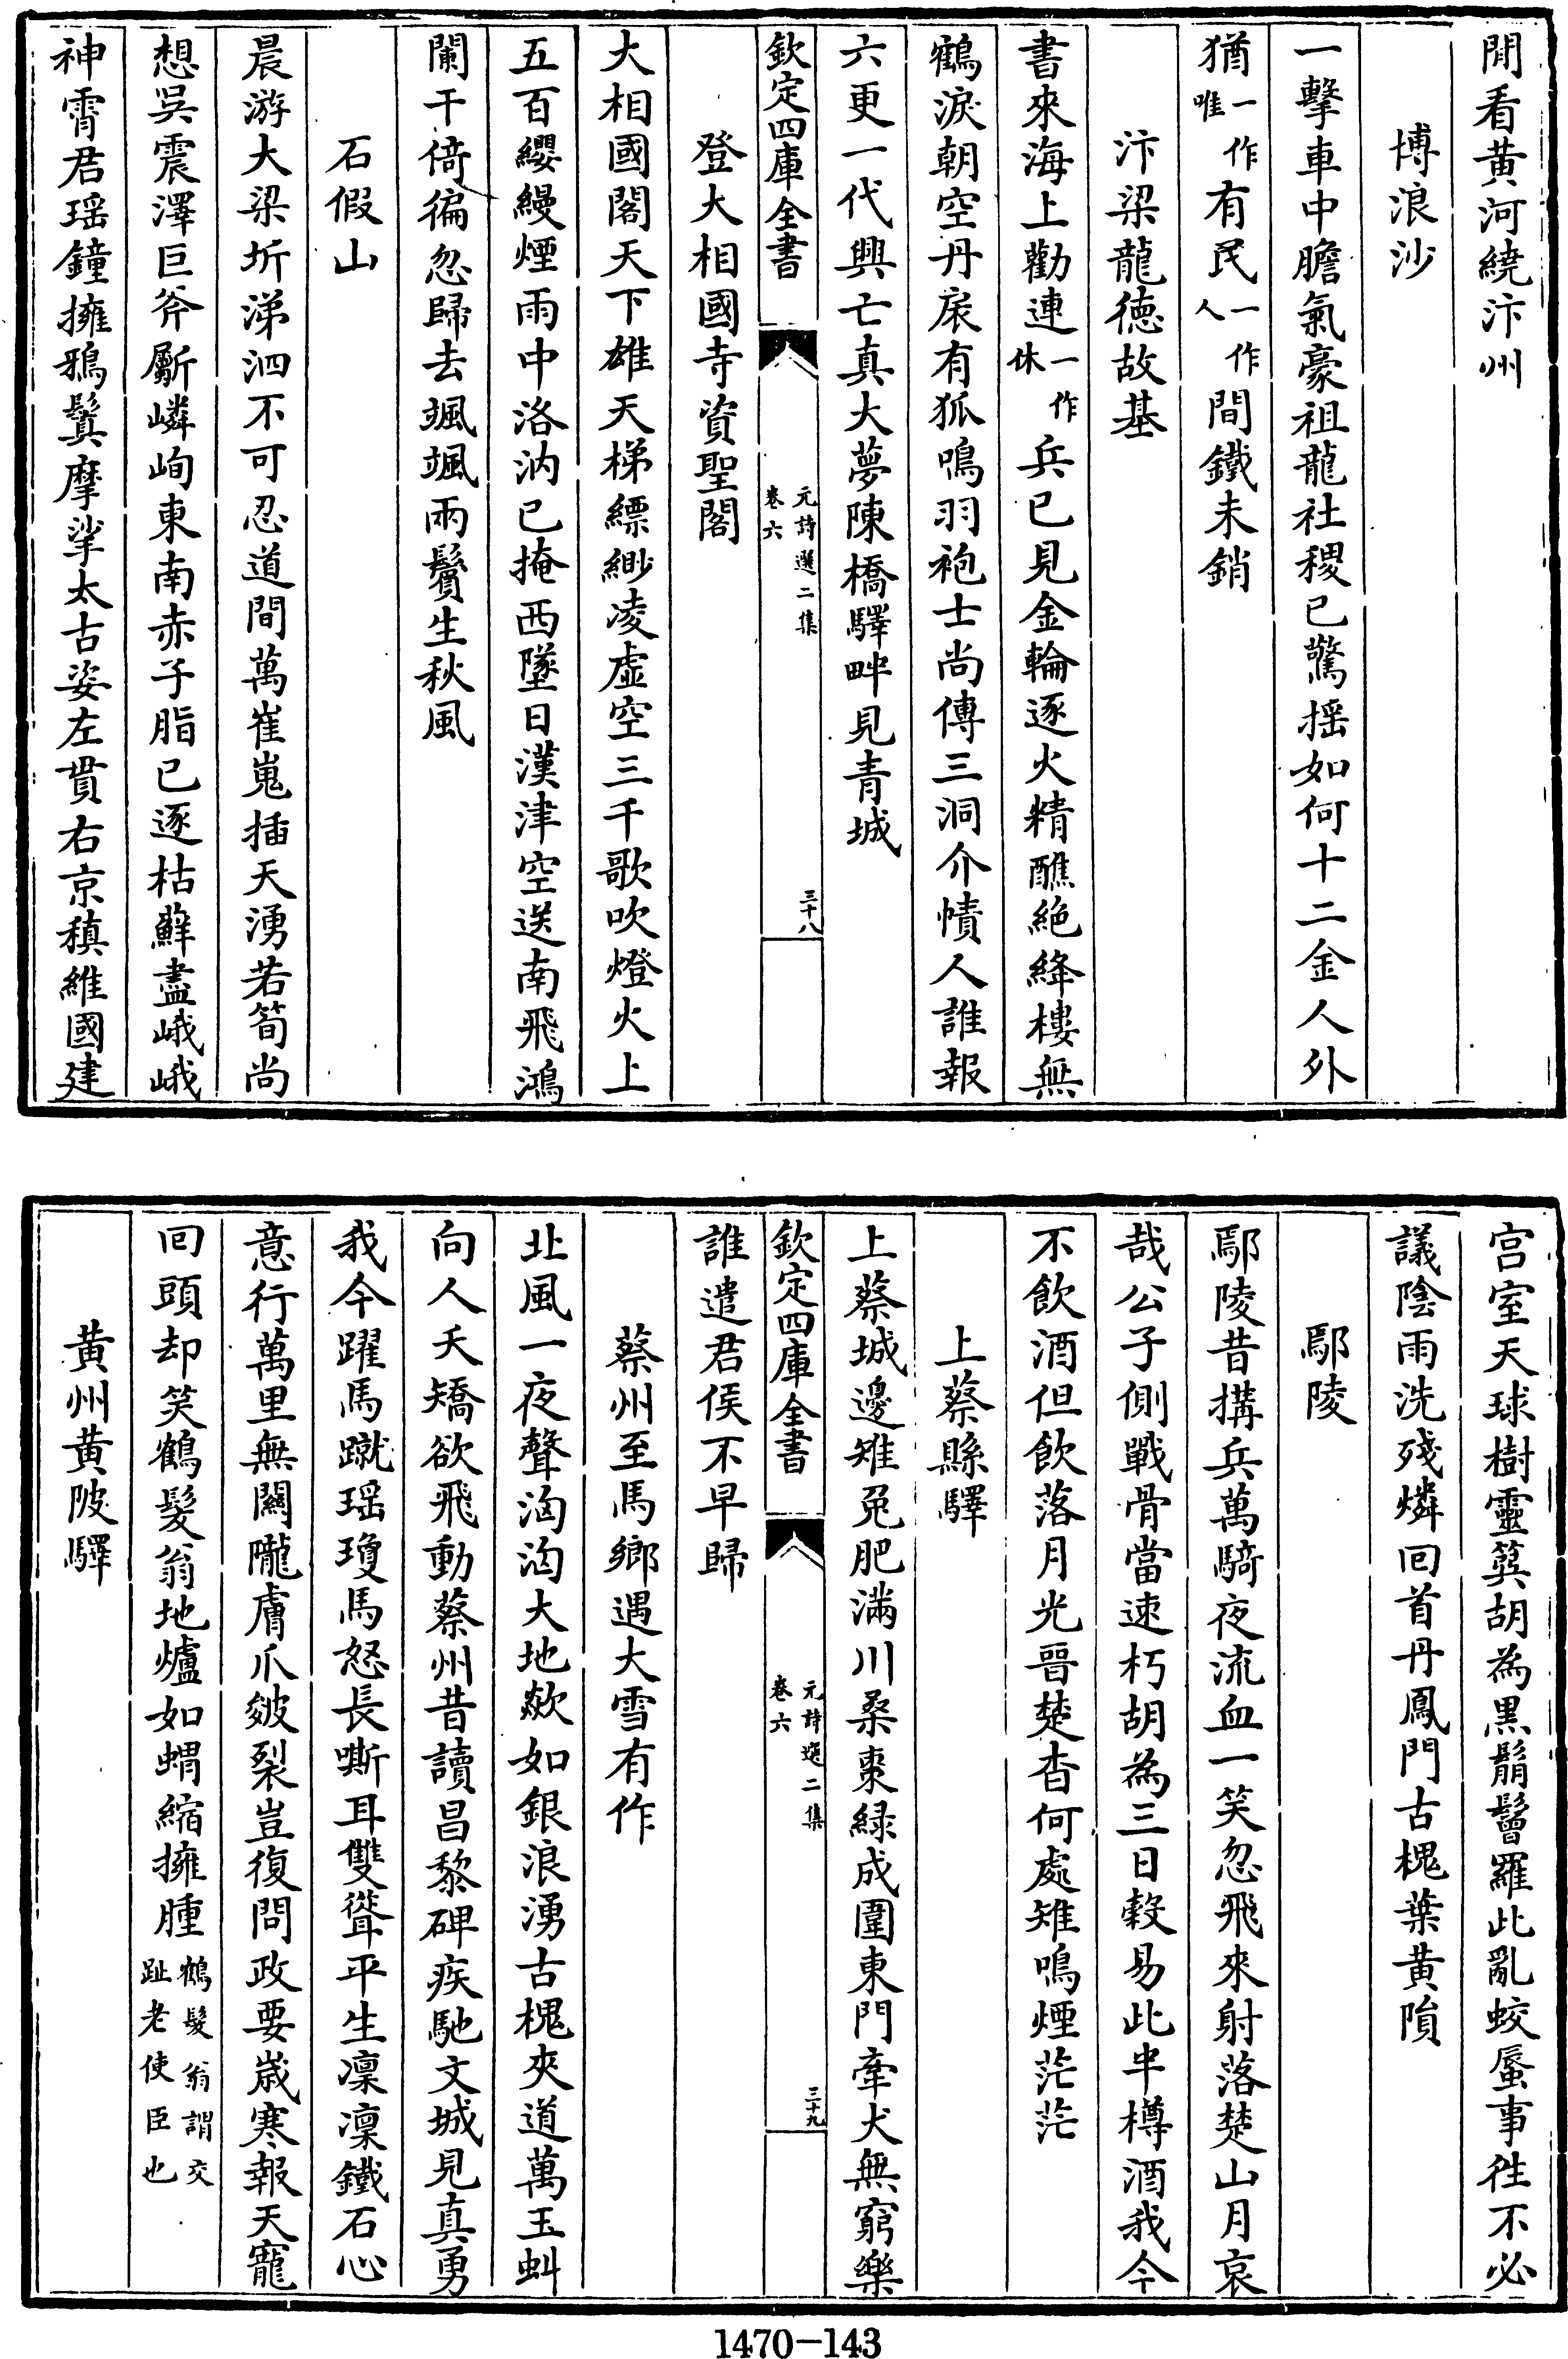 閒看黄河繞汴州
博浪沙
一擊車中膽氣豪祖龍社稷已驚揺如何十二金人外
猶一作唯有民一作人間鐵未銷
汴梁龍德故基
書來海上勸連一作休兵已見金輪逐火精醮絶絳樓無
鶴淚朝空丹扆有狐鳴羽袍士尚傳三洞介幘人誰報
六更一代興亡真大夢陳橋驛畔見青城
欽定四庫全書
元詩選二集
卷六
三十八
登大相國寺資聖閣
大相國閣天下雄天梯縹緲凌虚空三千歌吹燈火上
五百纓縵煙雨中洛汭已掩西墜日漢津空送南飛鴻
闌干倚徧忽歸去颯颯兩鬢生秋風
石假山
晨游大梁圻涕泗不可忍道間萬崔嵬插天湧若筍尚
想吳震澤巨斧斸嶙峋東南赤子脂已逐枯蘚盡峨峨
神霄君瑶鐘擁鴉鬒摩挲太古姿左貫右京稹維國建
宫室天球樹靈簨胡為黒鬅鬙羅此亂蛟蜃事徃不必
議陰雨洗殘燐回首丹鳳門古槐葉黄隕
鄢陵
鄢陵昔搆兵萬騎夜流血一笑忽飛來射落楚山月哀
哉公子側戰骨當速朽胡為三日穀易此半樽酒我今
不飲酒但飲落月光晉楚杳何處雉鳴煙茫茫
上蔡縣驛
上蔡城邊雉兎肥滿川桑棗緑成圍東門牽犬無窮樂
欽定四庫全書
元詩選二集
卷六
三十九
誰遣君侯不早歸
蔡州至馬鄉遇大雪有作
北風一夜聲洶洶大地欻如銀浪湧古槐夾道萬玉虯
向人夭矯欲飛動蔡州昔讀昌黎碑疾馳文城見真勇
我今躍馬蹴瑶瓊馬怒長嘶耳雙聳平生凜凜鐵石心
意行萬里無關隴膚爪皴裂豈復問政要歲寒報天寵
回頭却笑鶴髮翁地爐如蝟縮擁腫鶴髮翁謂交趾老使臣也
黄州黄陂驛
1470-143